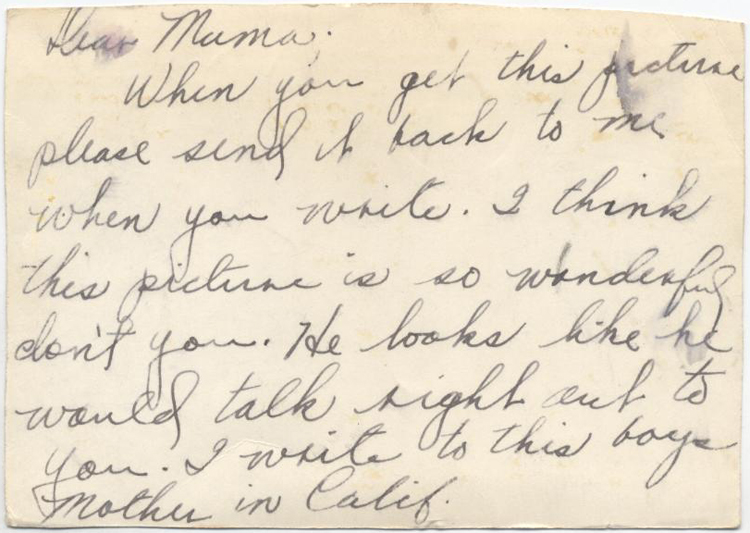 Dear Mama,
When you get this picture
please send it back to me
when you write. I think
this picture is so wonderful
don't you. He looks like he
would talk right out to
you. I write to this boys
Mother in Calif.